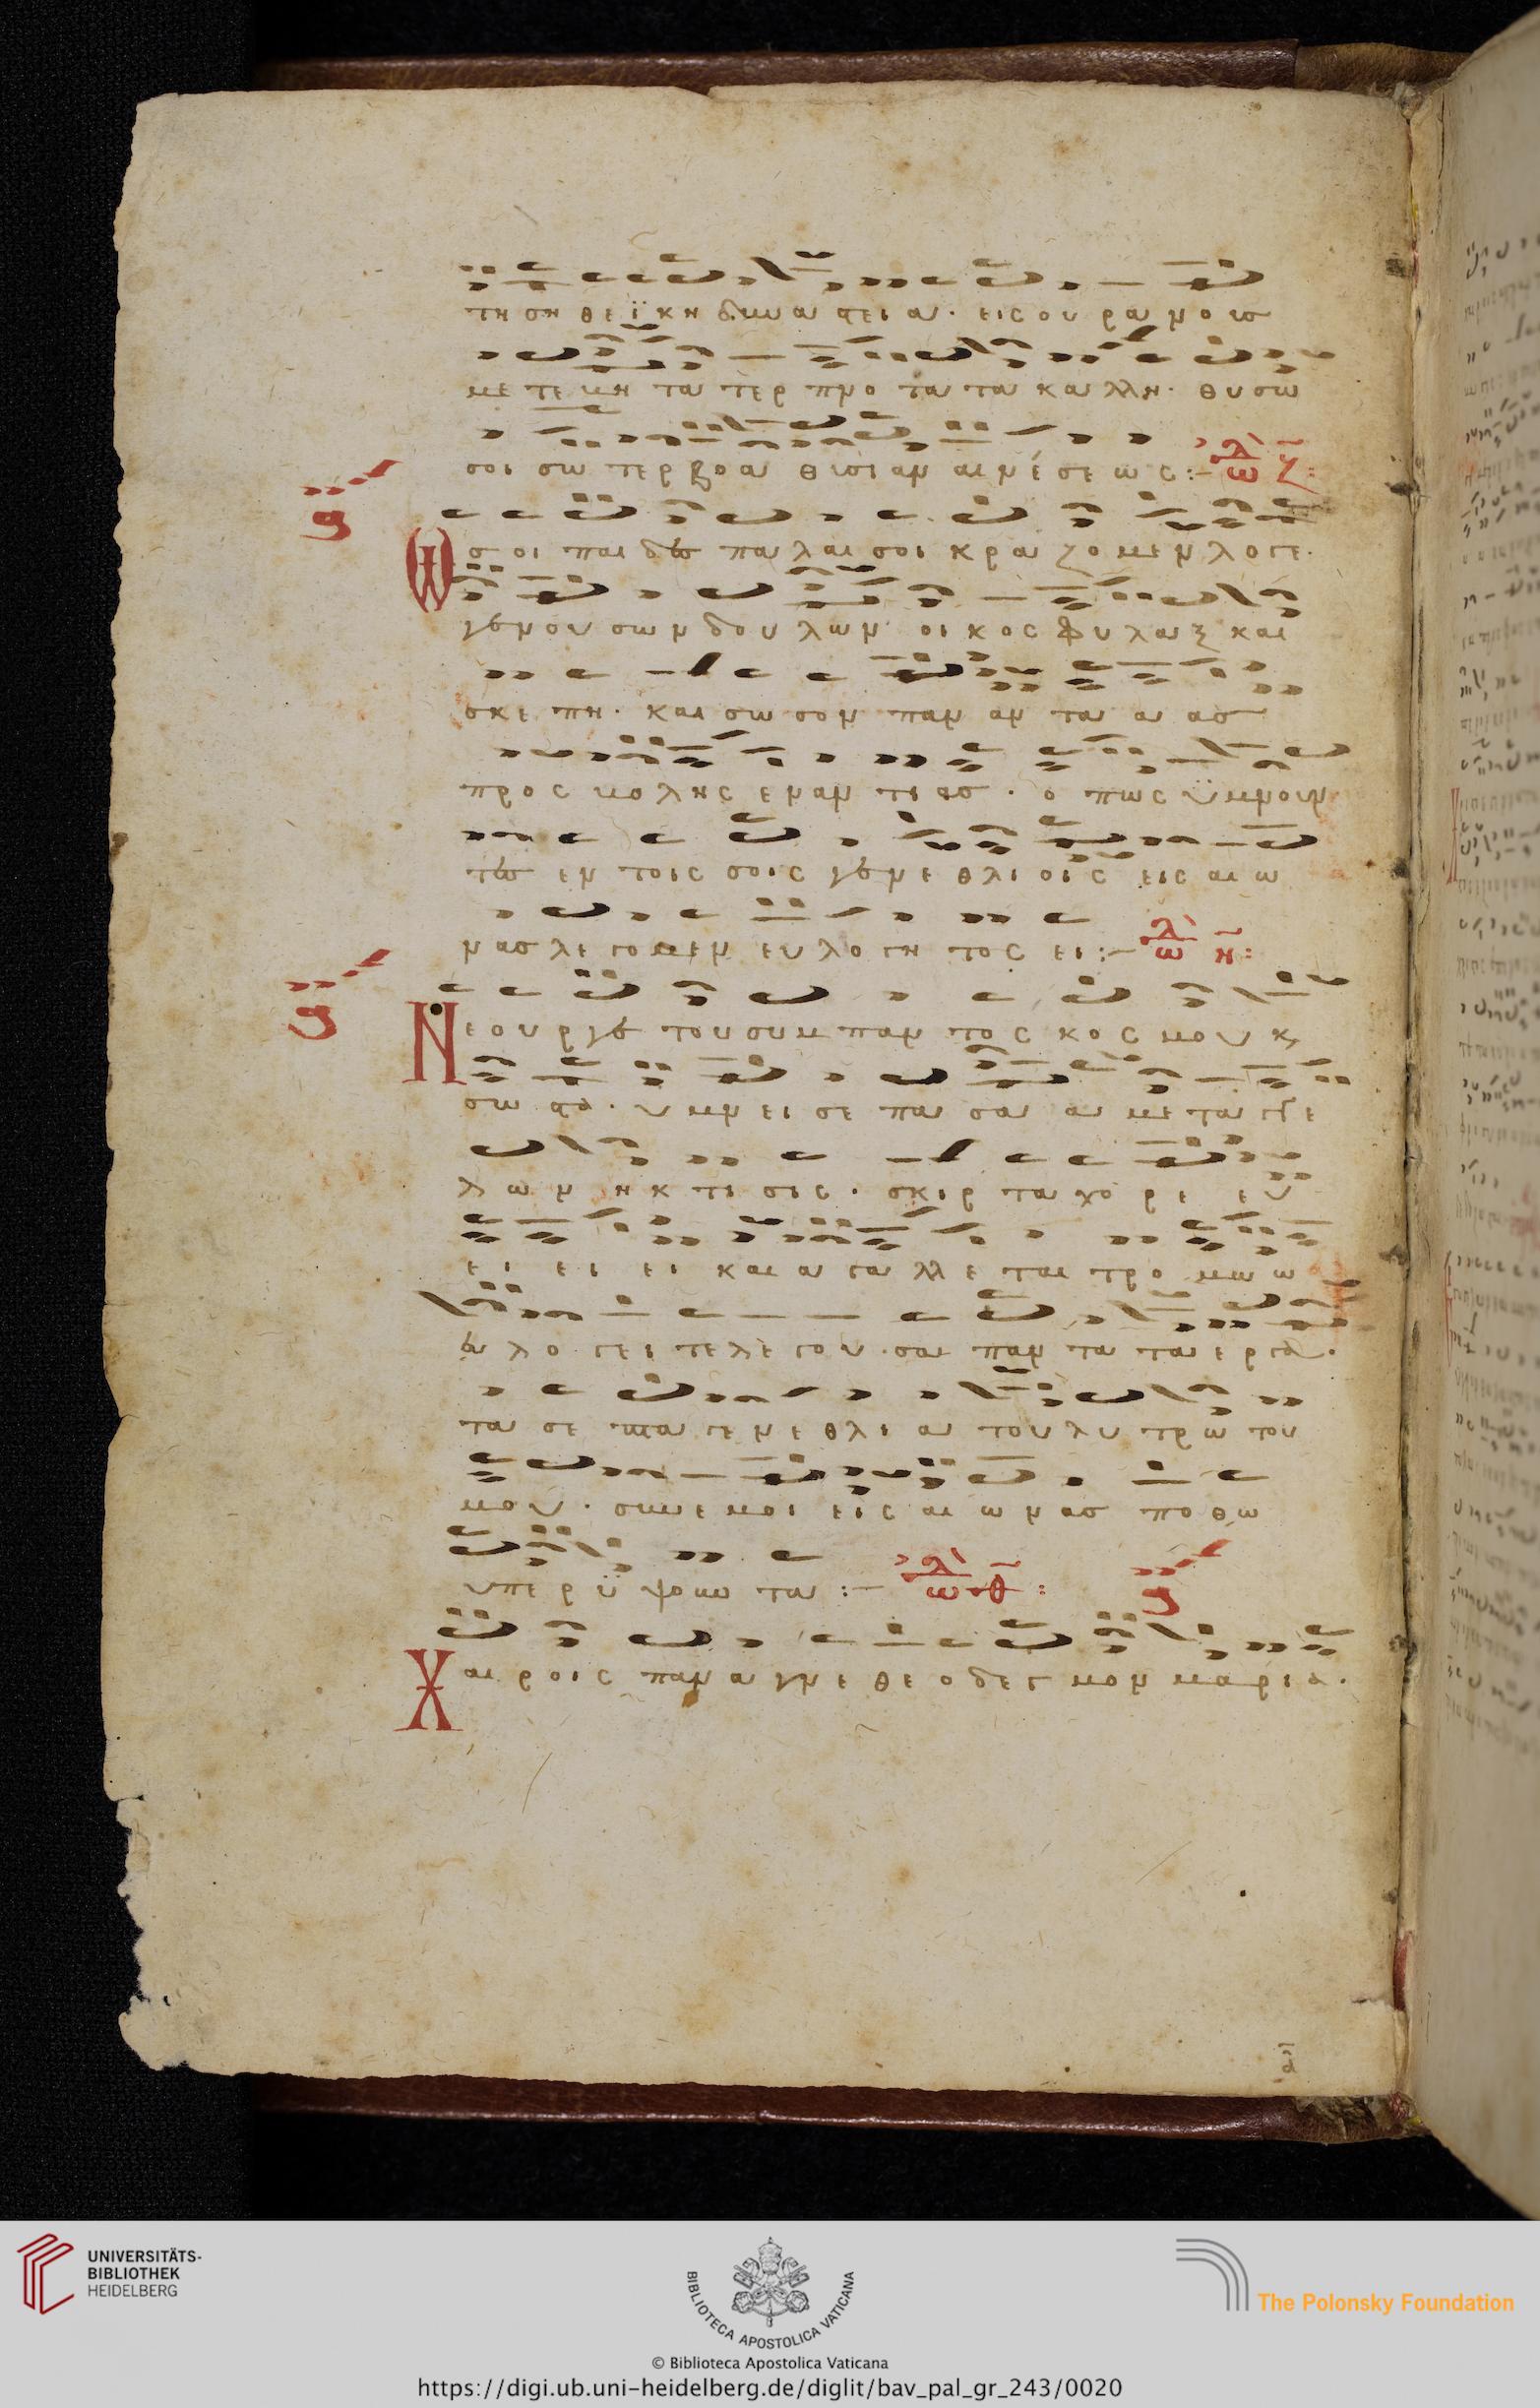 τη ση θε ϊ κη δυνα στει α · εις ου ρα νο ισ
με τε μη τα περ προ τα τα και λλη · θυ σω
σοι σω τερ βο αν θυσι αν αι νέ σε ω ς :- ω ζ :
Ω σ οι παι δεσ πα λαι σοι κρα ζο μεν λο γε ·
γε νου σω ν δου λων · οι κος φυ λα ξ και
σκε πη · και σω σον παν αν τα α ασ
προ ς μο λης ε ναν τι ασ · ο πως ϋμνουν
τεσ εν τοις σοις γε νε θλι οις εις αι ω
νασ λε γομεν ευ λο γη τος ει :- ω η :
Ν ε ου ργε του συμ παν το ς κο ς μου κ
σω στα · υ μνει σε πα σα α με τα γγε
λ ω ν η κ τι σις · σκιρ τα χο ρε ευ
ε ι ε ι ε ι και α γα λλε ται τρο μω ω
ευ λο γει τε λε γου · σαι παν τα τα ε ργα ·
τα σε πτα γε νε θλι α του λυ τρω του
μου · συν ε μοι εις αι ω νασ πο θω
υπε ρ ϋ ψου τω ται :- ω θ :
Χ αι ροις παν α γνε θε ο δεγ μον μαρια ·
ᾱ
UNIVERSITÄTS-
BIBLIOTHEK
HEIDELBERG
BIBLIOTECA APOSTOLICA VATICANA
The Polonsky Foundation
© Biblioteca Apostolica Vaticana
https://digi.ub.uni-heidelberg.de/diglit/bav_pal_gr_243/0020